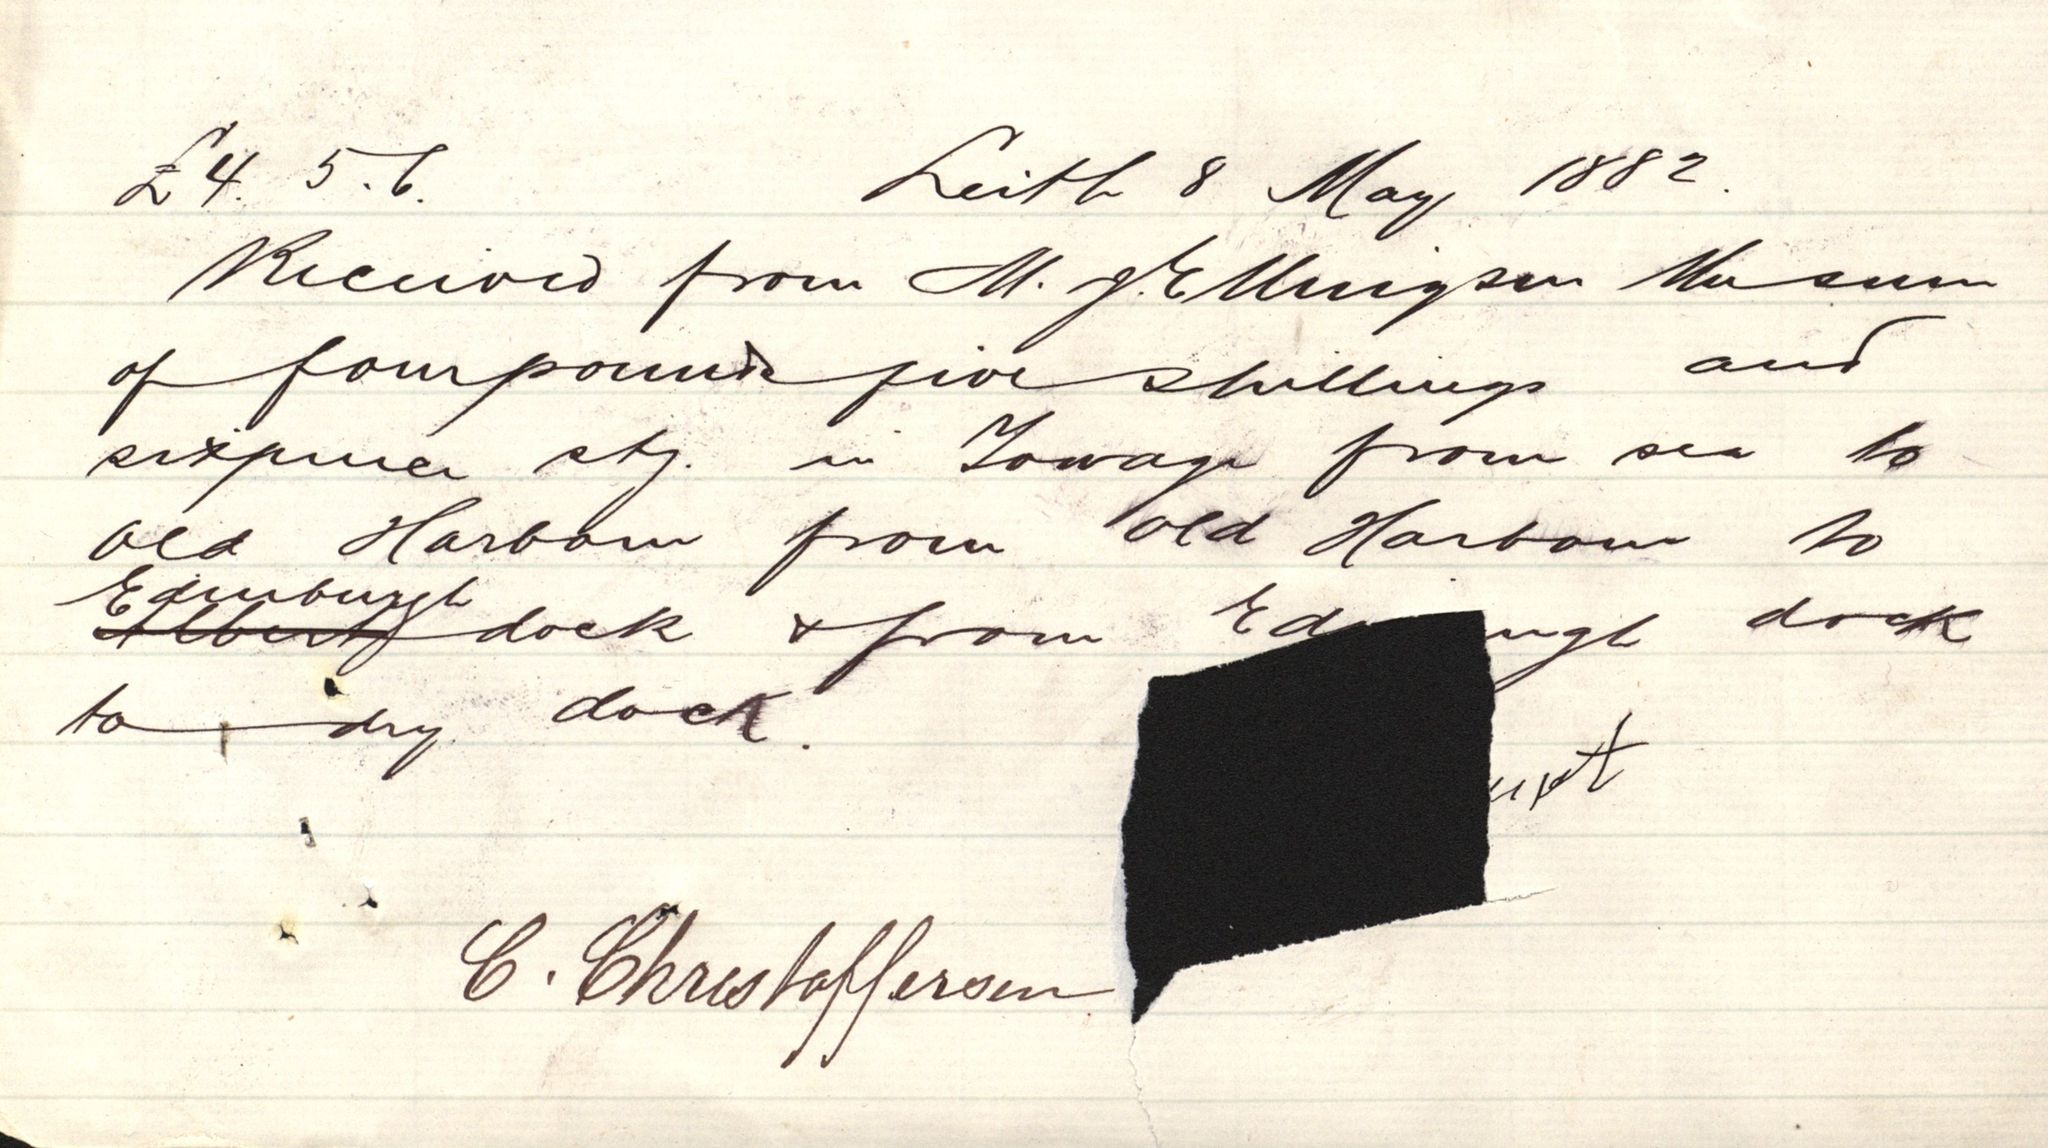 £4. 5. 6. Leith 8 May 1882.
Received from M. J. Ellingsen the sum
of four pounds five shillings and
sixpence stg. in Towage from sea to
old Harbour from old Harbour to
Edinburgh
Albert dock & from Ed urgh dock
to dry dock.
C. Christoffersen